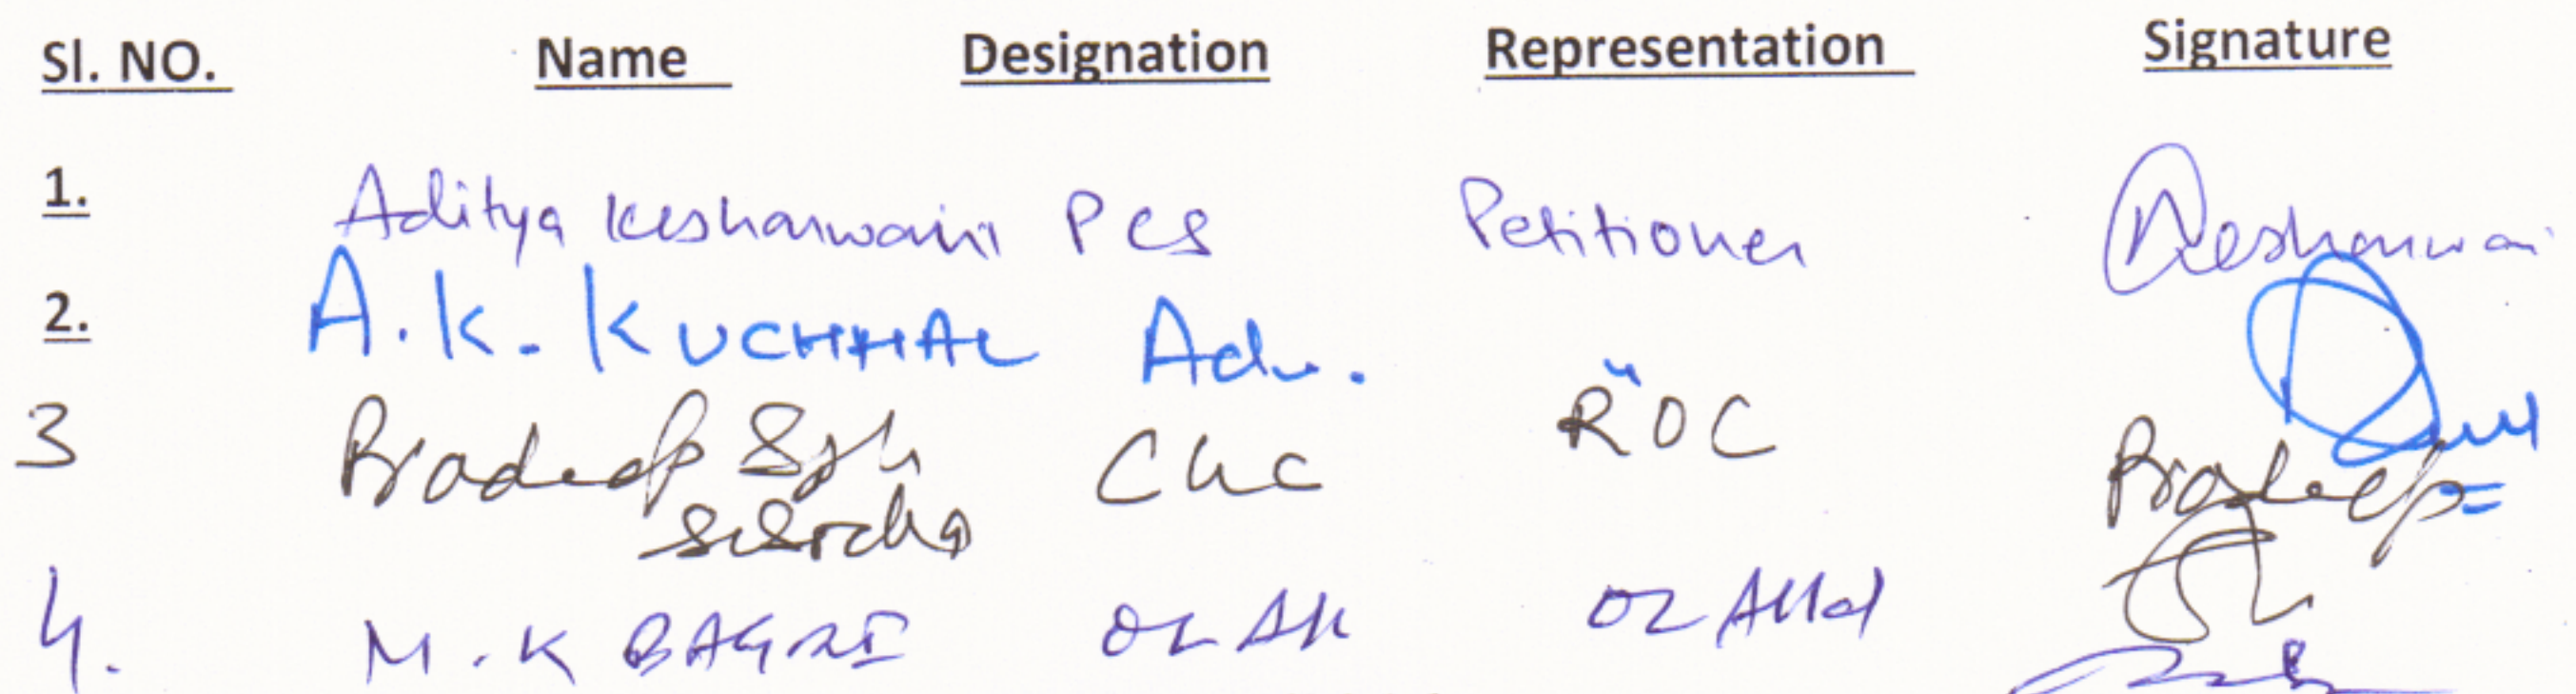 Sl. NO. Name Designation Representation Signature
1. Aditya Kesharwani PCS Petitioner Kesharwani
2. A.K. KUCHHAL Adv. "
3 Pradeep Sgh CLC ROC Pradeep
Sisodia
4. M.K BAGRI OL All OL Alld